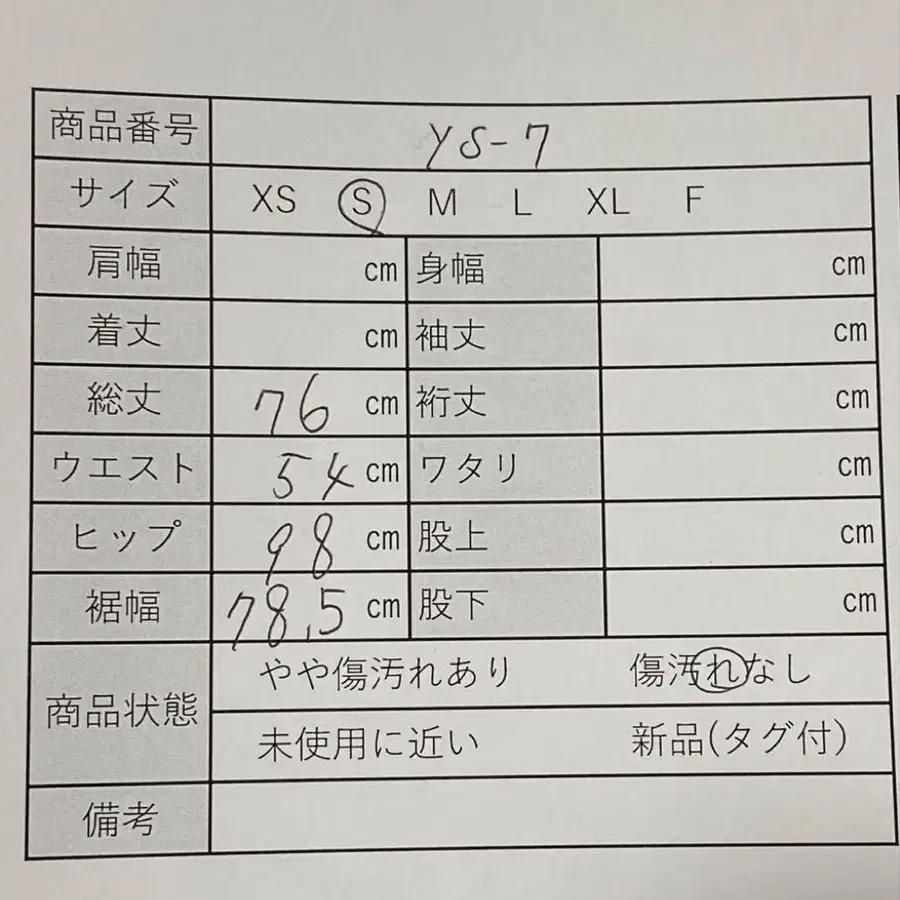 商品番号 YS-7
サイズ XS S M L XL F
肩幅 cm 身幅 cm
着丈 cm 袖丈 cm
総丈 76 cm 裄丈 cm
ウエスト 54 cm ワタリ cm
ヒップ 98 cm 股上 cm
裾幅 78.5 cm 股下 cm
商品状態 やや傷汚れあり 傷汚れなし
未使用に近い 新品(タグ付)
備考